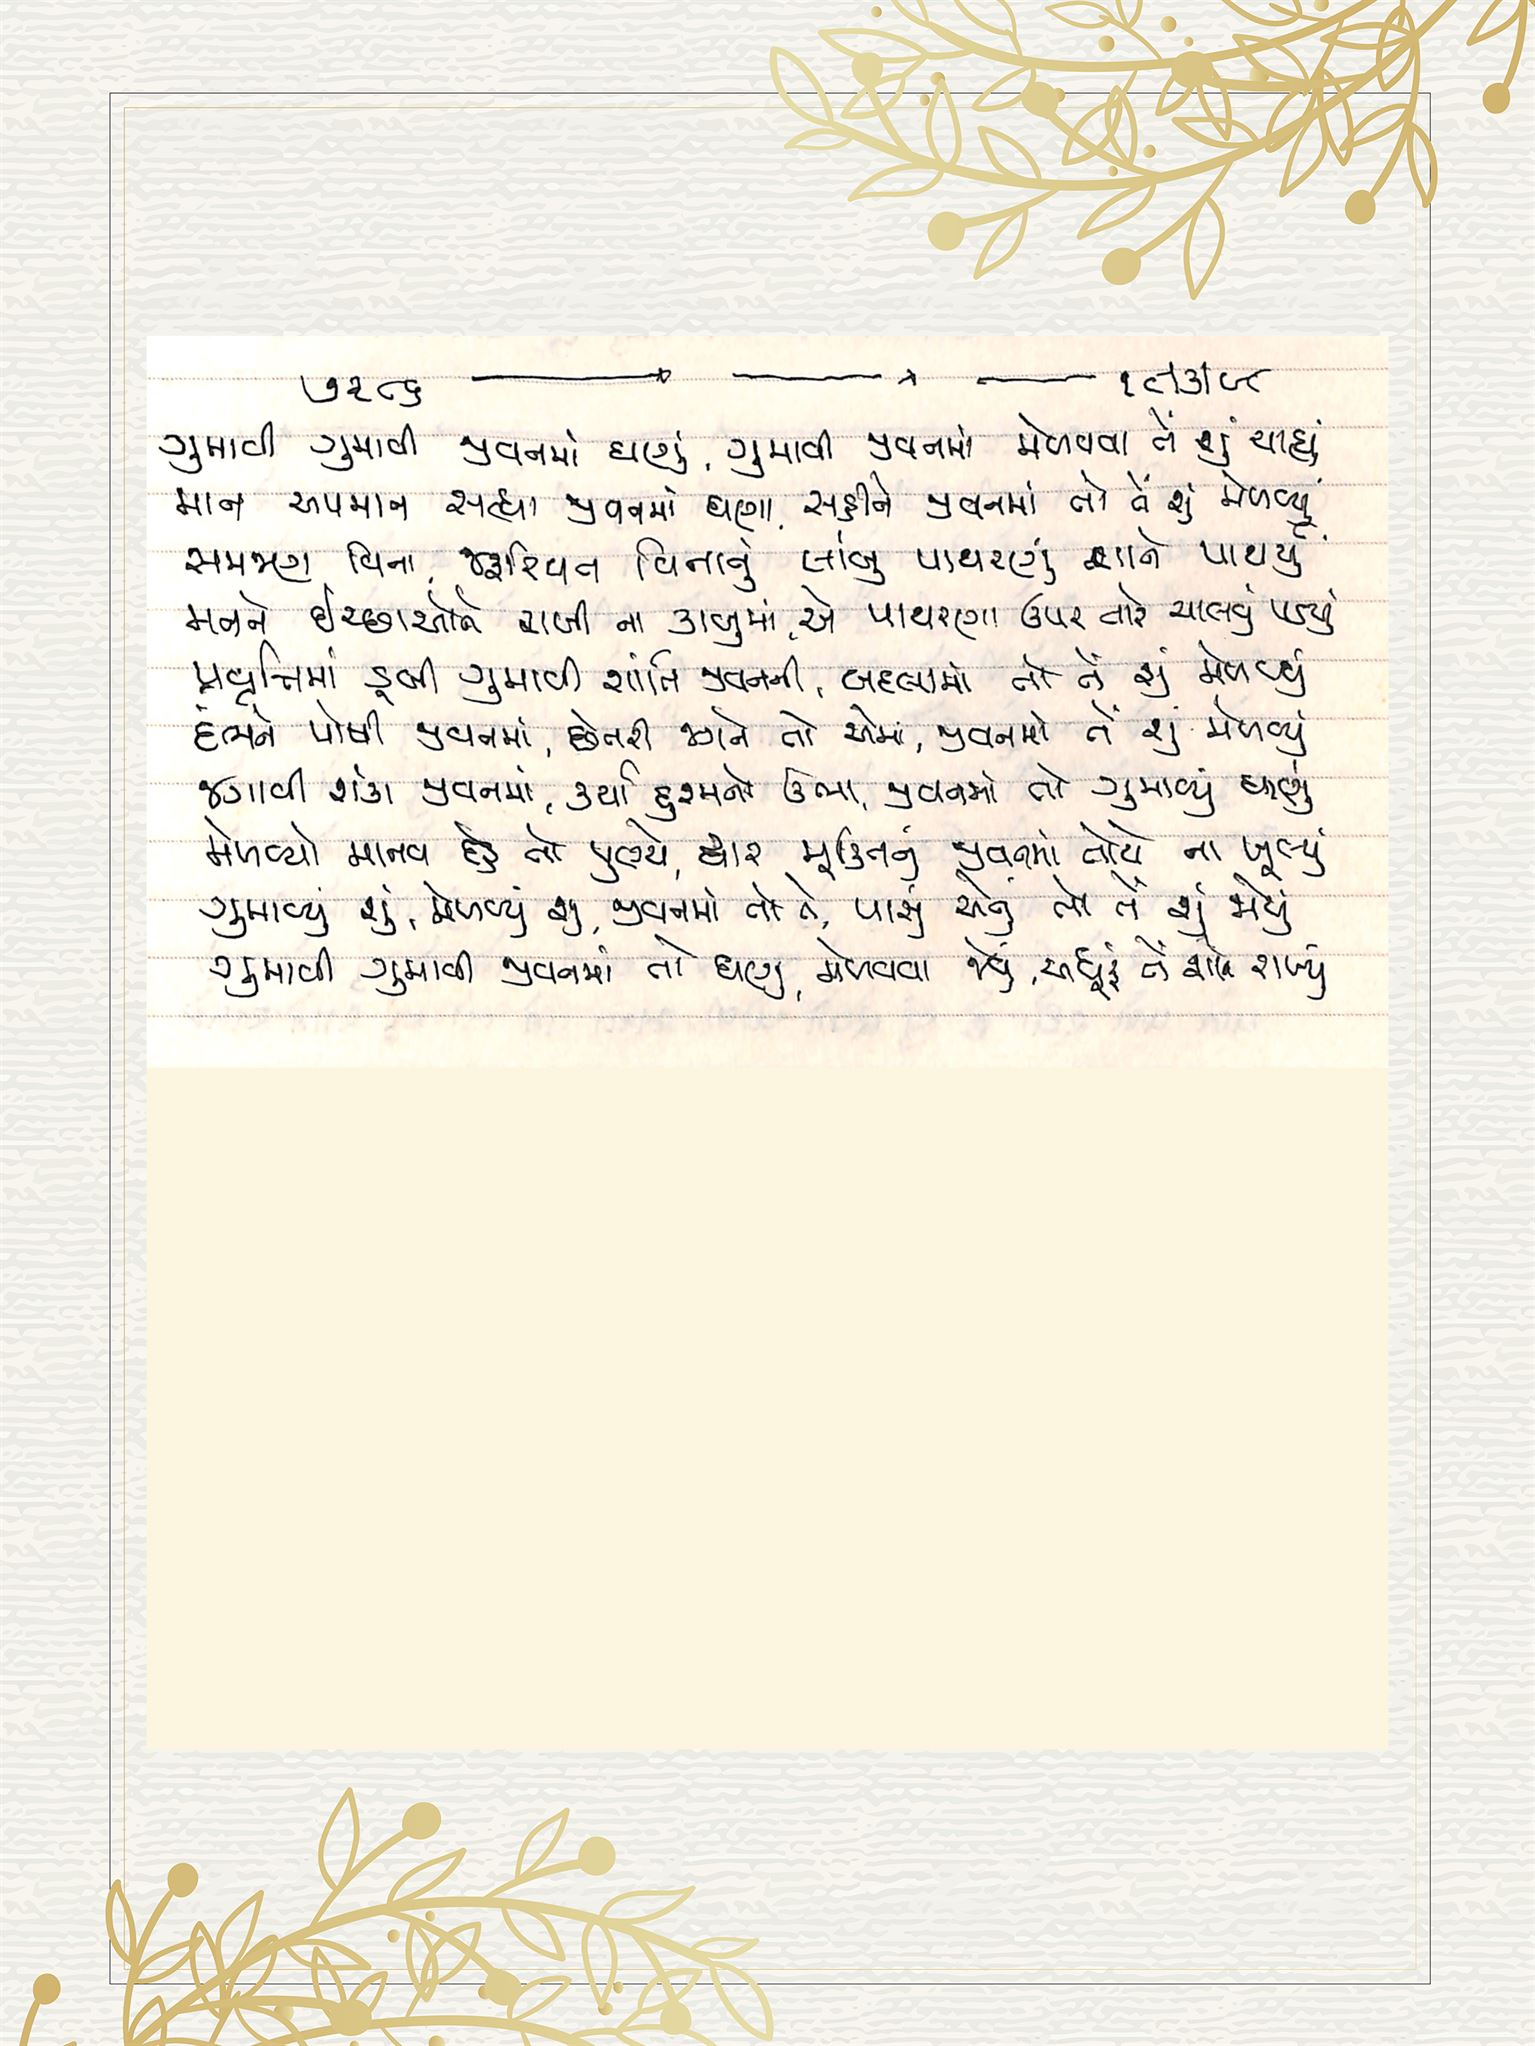 ૭૨૮૬
ગુમાવી ગુમાવી જીવનમાં ઘણું, ગુમાવી જીવનમાં મેળવવા તેં શું ચાહ્યું
માન અપમાન સહ્યા જીવનમાં ઘણા, સહીને જીવનમાં તો તેં શું મેળવ્યું
સમજણ વિના, જરૂરિયાત વિનાનું લાંબુ પાથરણું શાને પાથર્યું
મનને ઈચ્છાઓને રાખી ના કાબુમાં, એ પાથરણા ઉપર તારે ચાલવું પડ્યું
પ્રવૃત્તિમાં ડૂબી ગુમાવી શાંતિ જીવનની, બદલામાં તો તેં શું મેળવ્યું
દંભને પોષી જીવનમાં, છેતરી જાતને તો એમાં, જીવનમાં તેં શું મેળવ્યું
જગાવી શંકા જીવનમાં, કર્યા દુશ્મનો ઉભા, જીવનમાં તો ગુમાવ્યું ઘણું
મેળવ્યો માનવ દેહ તો પુણ્યે, દ્વાર મુક્તિનું જીવનમાં તોયે ના ખૂલ્યું
ગુમાવ્યું શું, મેળવ્યું શું, જીવનમાં તો તેં, પાસું એનું તો તેં શું જોયું
ગુમાવી ગુમાવી જીવનમાં તો ઘણું, મેળવવા જેવું, અધૂરું તેં શાને રાખ્યું